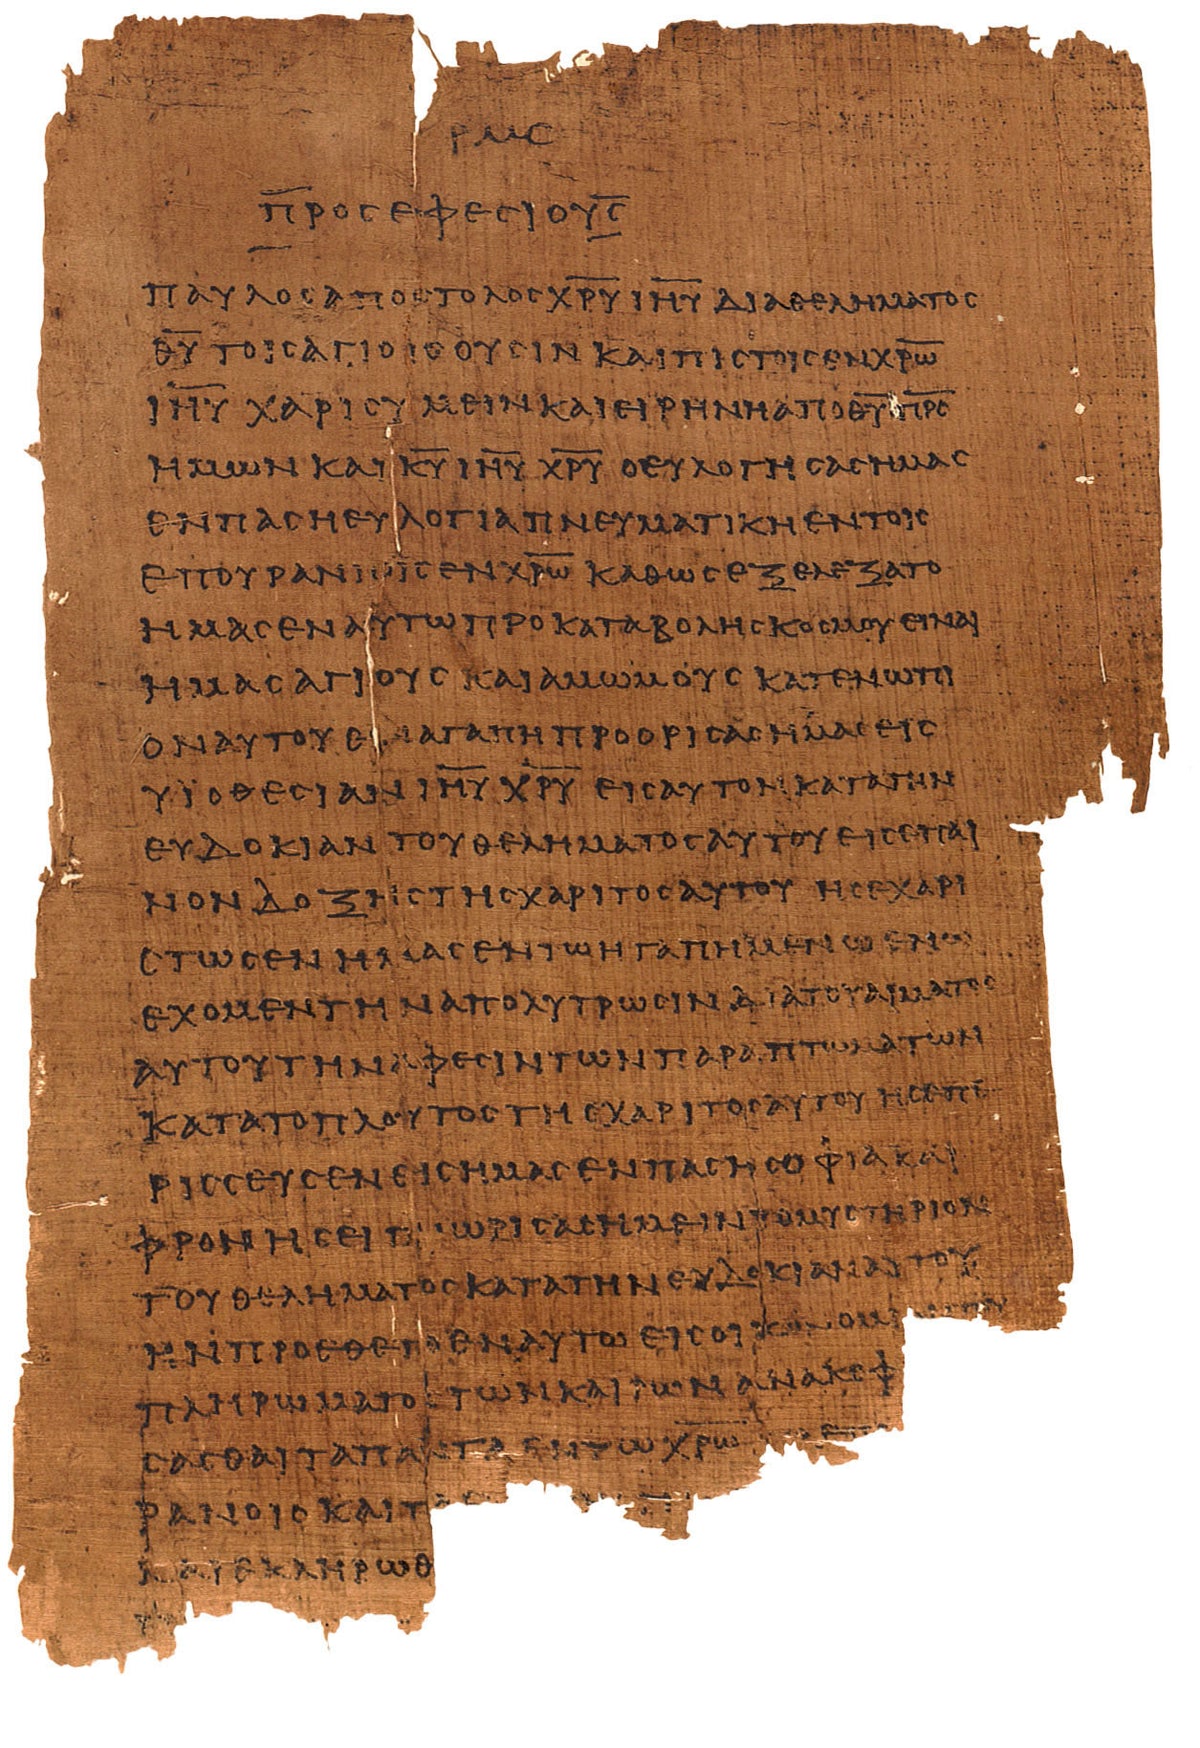 ΡΜϚ
Π̅ΡΟСΕΦΕСΙΟΥС̅
ΠΑΥΛΟСΑΠΟСΤΟΛΟСΧ̅Ρ̅Υ̅ Ι̅Η̅Υ̅ ΔΙΑΘΕΛΗΜΑΤΟС
Θ̅Υ̅ ΤΟΙСΑΓΙΟΙСΟΥСΙΝ ΚΑΙΠΙСΤΟΙСΕΝΧ̅Ρ̅Ω̅
Ι̅Η̅Υ̅ ΧΑΡΙСΥΜΕΙΝΚΑΙΕΙΡΗΝΗΑΠΟΘ̅Υ̅ Π̅Ρ̅С̅
ΗΜΩΝ ΚΑΙ Κ̅Υ̅ Ι̅Η̅Υ̅ Χ̅Ρ̅Υ̅ ΟΕΥΛΟΓΗСΑСΗΜΑС
ΕΝΠΑСΗΕΥΛΟΓΙΑΠΝΕΥΜΑΤΙΚΗΕΝΤΟΙС
ΕΠΟΥΡΑΝΙΟΙСΕΝΧ̅Ρ̅Ω̅ ΚΑΘΩСΕΞΕΛΕΞΑΤΟ
ΗΜΑСΕΝΑΥΤΩΠΡΟΚΑΤΑΒΟΛΗСΚΟСΜΟΥΕΙΝΑΙ
ΗΜΑСΑΓΙΟΥС ΚΑΙΑΜΩΜΟΥС ΚΑΤΕΝΩΠΙ
ΟΝΑΥΤΟΥΕΝΑΓΑΠΗΠΡΟΟΡΙСΑСΗΜΑСΕΙС
ΥΪΟΘΕСΙΑΝ Ι̅Η̅Υ̅ Χ̅Ρ̅Υ̅ ΕΙСΑΥΤΟΝΚΑΤΑΤΗΝ
ΕΥΔΟΚΙΑΝ ΤΟΥΘΕΛΗΜΑΤΟСΑΥΤΟΥΕΙСΕΠΑΙ
ΝΟΝΔΟΞΗСΤΗСΧΑΡΙΤΟСΑΥΤΟΥ ΗСΕΧΑΡΙ
СΤΩСΕΝΗΜΑСΕΝΤΩΗΓΑΠΗΜΕΝΩΕΝΩ
ΕΧΟΜΕΝΤΗΝΑΠΟΛΥΤΡΩСΙΝΔΙΑΤΟΥΑΙΜΑΤΟС
ΑΥΤΟΥΤΗΝΑΦΕСΙΝΤΩΝΠΑΡΑΠΤΩΜΑΤΩΝ
ΚΑΤΑΤΟΠΛΟΥΤΟСΤΗСΧΑΡΙΤΟСΑΥΤΟΥΗСΕΠΕ
ΡΙССΕΥСΕΝΕΙСΗΜΑСΕΝΠΑСΗСΟΦΙΑΚΑΙ
ΦΡΟΝΗСΕΙΓΝΩΡΙСΑСΗΜΕΙΝΤΟΜΥСΤΗΡΙΟΝ
ΤΟΥΘΕΛΗΜΑΤΟСΚΑΤΑΤΗΝΕΥΔΟΚΙΑΝΑΥΤΟΥ
ΗΝΠΡΟΕΘΕΤΟΕΝΑΥΤΩΕΙСΟΙΚΟΝΟΜΙΑΝΤΟΥ
ΠΛΗΡΩΜΑΤΟСΤΩΝΚΑΙΡΩΝΑΝΑΚΕΦ
СΑСΘΑΙΤΑΠΑΝΤΑΕΝΤΩΧ̅Ρ̅Ω̅
ΡΑΝΟΙСΚΑΙΤ
ΚΑΙΕΚΛΗΡΩΘ